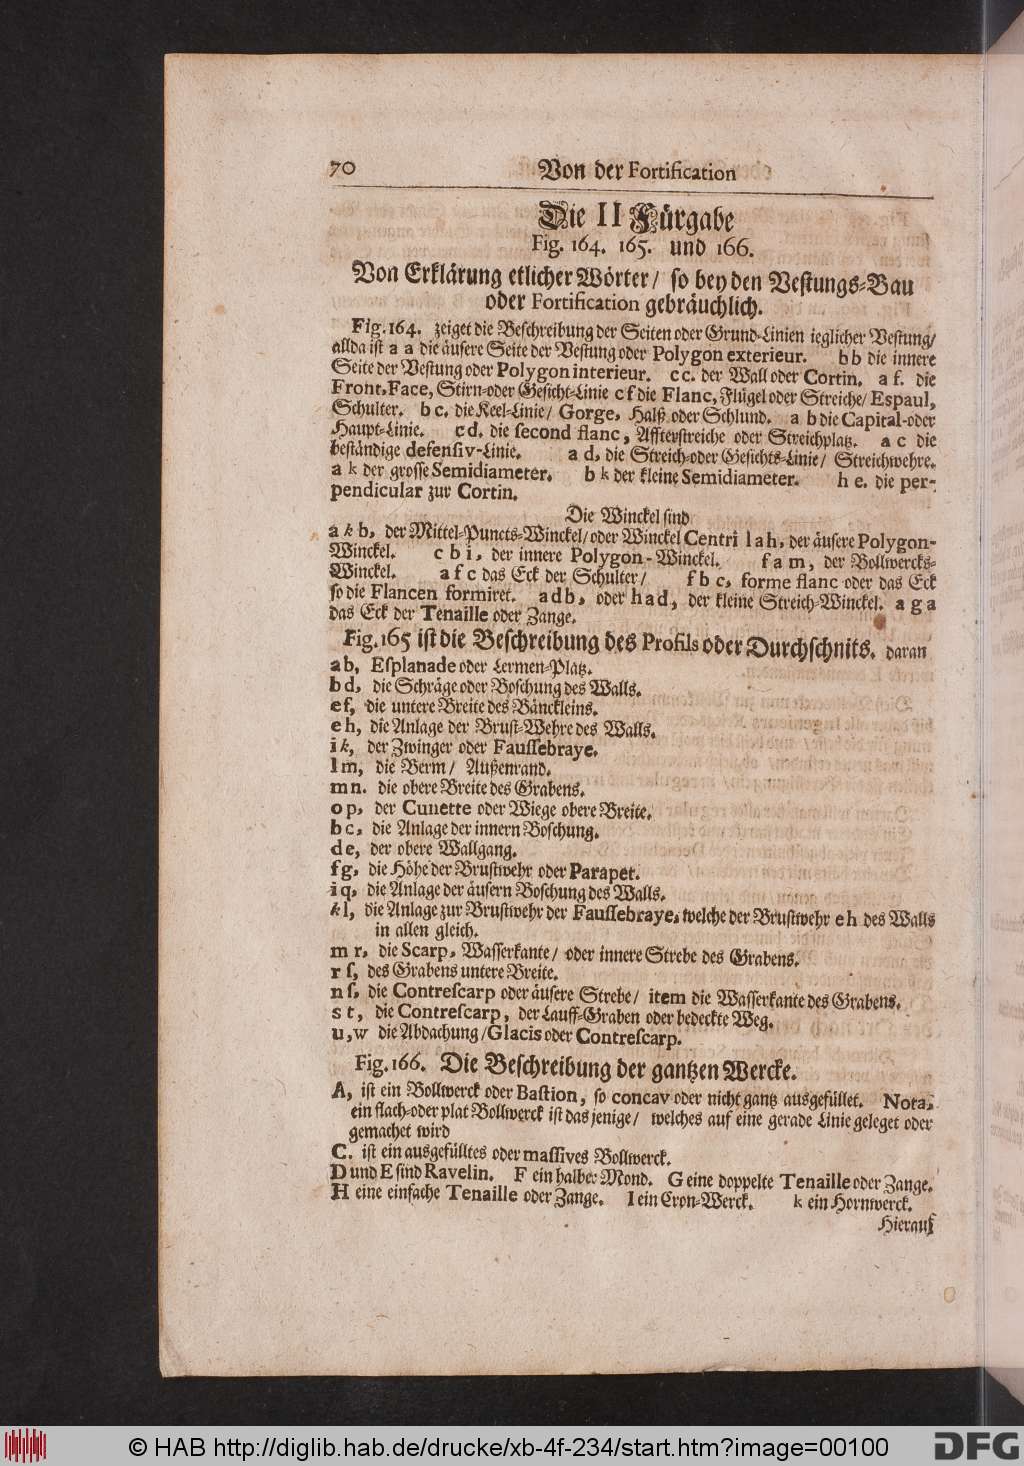 70 Von der Fortification
Die II Fürgabe
Fig. 164. 165. und 166.
Von Erklärung etlicher Wörter/ so bey den Vestungs-Bau
oder Fortification gebräuchlich.
Fig. 164. zeiget die Beschreibung der Seiten oder Grund-Linien ieglicher Vestung/
allda ist a a die äusere Seite der Vestung oder Polygon exterieur. b b die innere
Seite der Vestung oder Polygon interieur. c c. der Wall oder Cortin. a f. die
Front, Face, Stirn-oder Gesicht-Linie c f die Flanc, Flügel oder Streiche/ Espaul,
Schulter. b c. die Keel-Linie/ Gorge, Halß oder Schlund. a b die Capital-oder
Haupt-Linie. c d. die second flanc, Affterstreiche oder Streichplatz. a c die
beständige defensiv-Linie. a d, die Streich-oder Gesichts-Linie/ Streichwehre.
a k der grosse Semidiameter. b k der kleine Semidiameter. h e. die per-
pendicular zur Cortin.
Die Winckel sind
a k b, der Mittel-Puncts-Winckel/ oder Winckel Centri l a h, der äusere Polygon-
Winckel. c b i, der innere Polygon-Winckel. f a m, der Bollwercks-
Winckel. a f c das Eck der Schulter/ f b c, forme flanc oder das Eck
so die Flancen formiret. a d b, oder h a d, der kleine Streich-Winckel. a g a
das Eck der Tenaille oder Zange.
Fig. 165 ist die Beschreibung des Profils oder Durchschnits. daran
a b, Esplanade oder Lermen-Platz.
b d, die Schräge oder Boschung des Walls.
e f, die untere Breite des Bänckleins.
e h, die Anlage der Brust-Wehre des Walls.
i k, der Zwinger oder Faussebraye.
l m, die Berm/ Außenrand.
m n. die obere Breite des Grabens.
o p, der Cunette oder Wiege obere Breite.
b c, die Anlage der innern Boschung.
d e, der obere Wallgang.
f g, die Höhe der Brustwehr oder Parapet.
i q, die Anlage der äusern Boschung des Walls.
k l, die Anlage zur Brustwehr der Faussebraye, welche der Brustwehr e h des Walls
in allen gleich.
m r, die Scarp, Wasserkante/ oder innere Strebe des Grabens.
r s, des Grabens untere Breite.
n s, die Contrescarp oder äusere Strebe/ item die Wasserkante des Grabens.
s t, die Contrescarp, der Lauff-Graben oder bedeckte Weg.
u, w die Abdachung/ Glacis oder Contrescarp.
Fig. 166. Die Beschreibung der gantzen Wercke.
A, ist ein Bollwerck oder Bastion, so concav oder nicht gantz ausgefüllet. Nota,
ein flach-oder plat Bollwerck ist das jenige/ welches auf eine gerade Linie geleget oder
gemachet wird
C. ist ein ausgefülltes oder massives Bollwerck.
D und E sind Ravelin. F ein halber Mond. G eine doppelte Tenaille oder Zange.
H eine einfache Tenaille oder Zange. I ein Cron-Werck. k ein Hornwerck.
Hierauf
© HAB http://diglib.hab.de/drucke/xb-4f-234/start.htm?image=00100 DFG